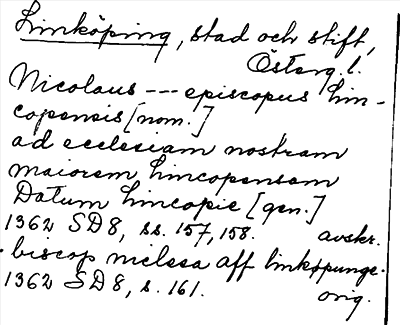 Linköping, stad och stift,
Österg. l.
Nicolaus --- episcopus Lin-
copensis [nom.]
ad ecclesiam nostram
maiorem Lincopensem
Datum Lincopie [gen.]
1362 SD8, ss. 157, 158. avskr.
biscop niclssa aff linkøpunge.
1362 SD8, s. 161. orig.